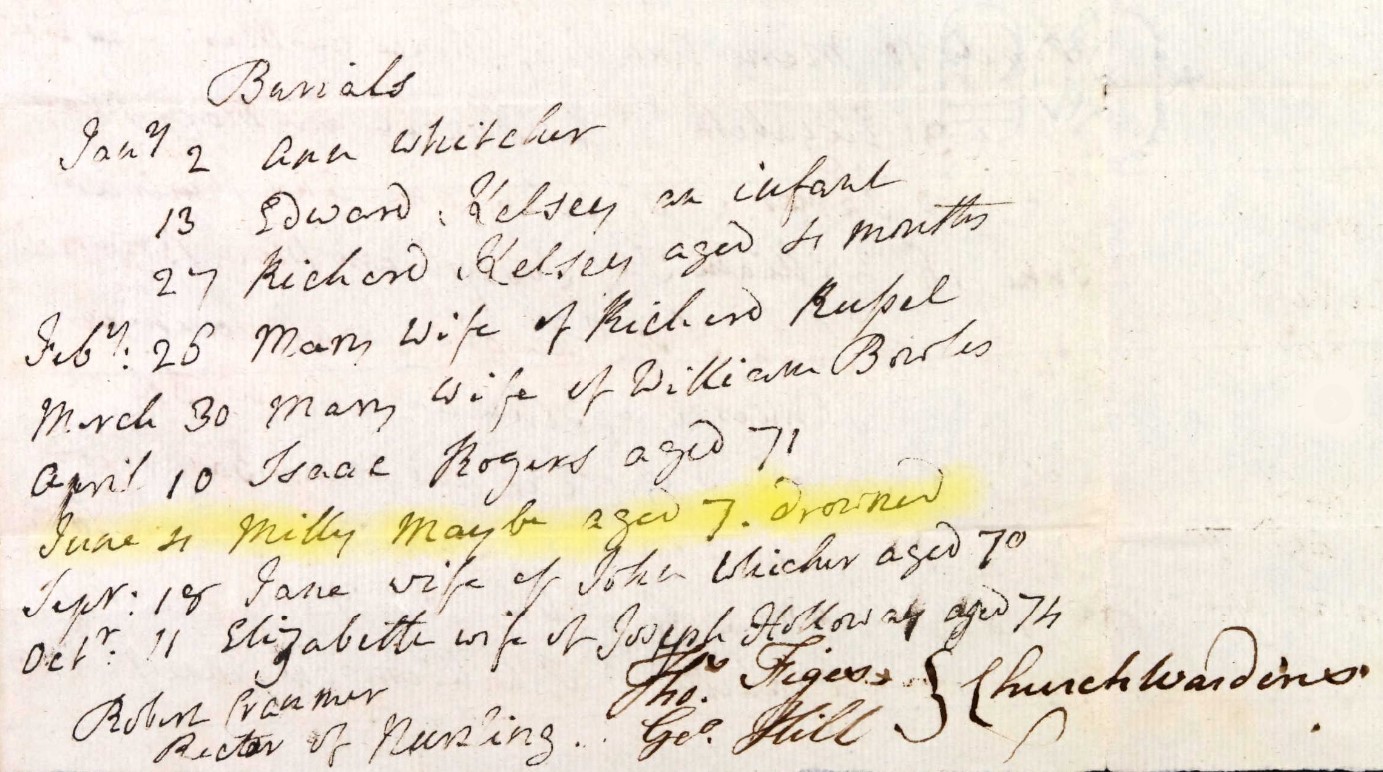 Burials
Janry 2 Ann Whitcher
13 Edward Kelsey an infant
27 Richard Kelsey aged 4 months
Febry: 26 Mary Wife of Richard Russel
March 30 Mary wife of William Bowles
April 10 Isaac Rogers aged 71
June 4 Milly Maybe aged 7. drowned
Sepr: 18 Jane wife of John Whicher aged 70
Octr: 11 Elizabeth wife of Joseph Holloway aged 74
Robert Cranmer Thos. Figes
Rector of Nursling. Geo. Hill } Churchwardins